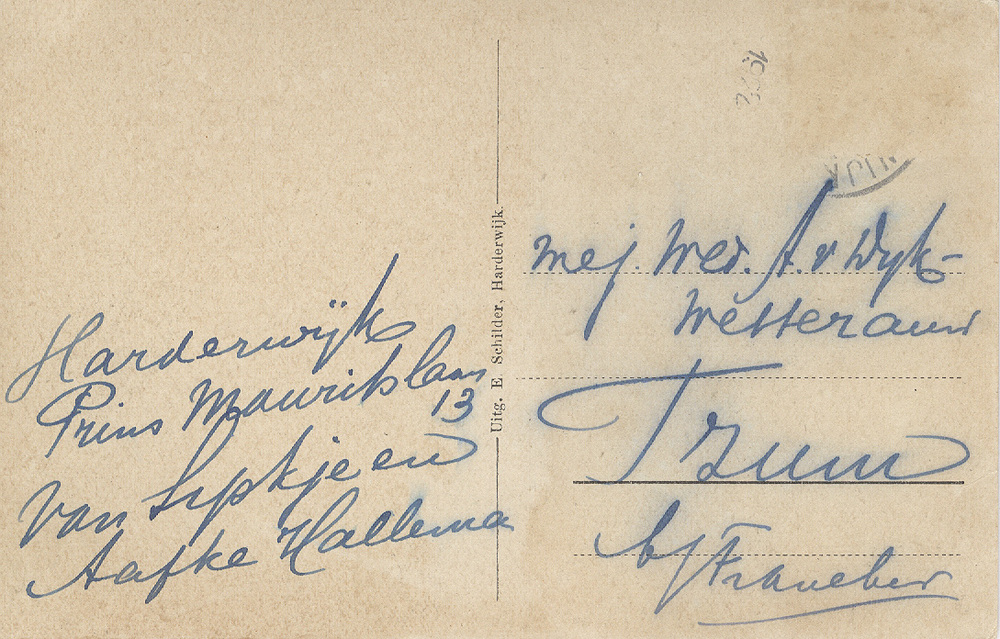 Harderwijk
Prins Mauritslaan
13
van Sipkje en
Aafke Hallema
Uitg. E. Schilder, Harderwijk.
Mej. Wed. A. v Wyk-
Westerauw
Tzum
b/ Franeker